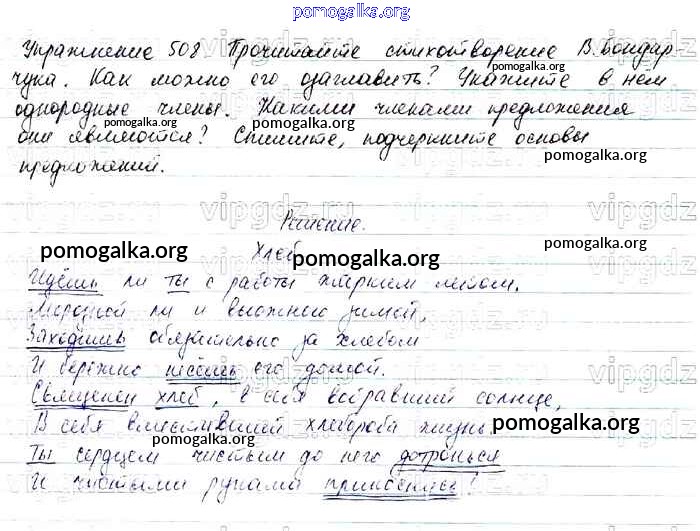 pomogalka.org
Упражнение 508 Прочитайте стихотворение В. Бондар-
чука. Как можно его озаглавить? Укажите в нём
однородные члены. Какими членами предложения
они являются? Спишите, подчеркните основы
предложений.
Решение.
Хлеб
Идёшь ли ты с работы жарким летом,
Морозной ли и вьюжною зимой,
Заходишь обязательно за хлебом
И бережно несёшь его домой.
Священен хлеб, в себя вобравший солнце,
В себя вместивший хлебороба жизнь.
Ты сердцем чистым до него дотронься
И чистыми руками прикоснись!
pomogalka.org
pomogalka.org
pomogalka.org
pomogalka.org
pomogalka.org
pomogalka.org
pomogalka.org
pomogalka.org
pomogalka.org
vipgdz.ru
vipgdz.ru
vipgdz.ru